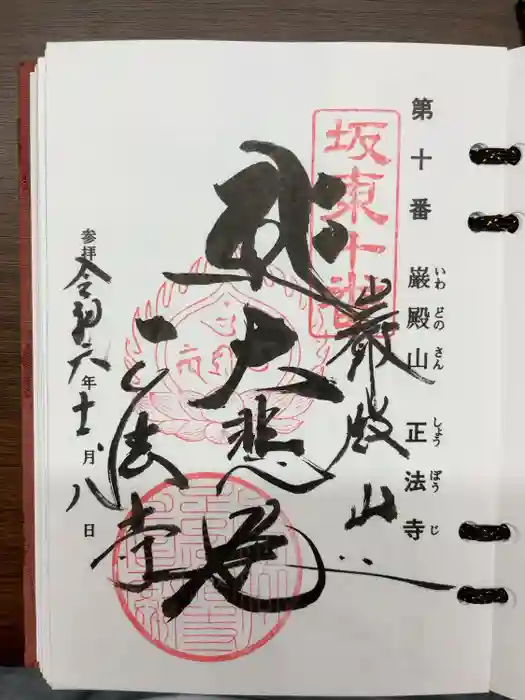 第十番 巌殿山 正法寺
いわ どの さん しょう ぼう じ
坂東十番
巖殿山
大悲殿
正法寺
参拝 令和六年十一月八日